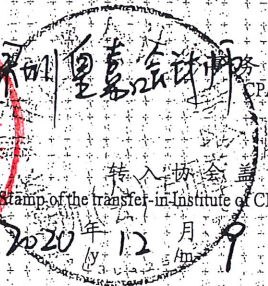 深圳皇嘉会计师务
CPA
转入协会盖
Stamp of the transfer-in Institute of CP
2020年12月9
/y /m